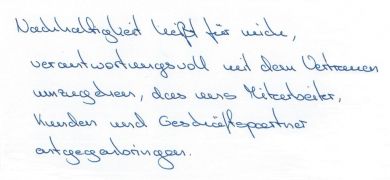 Nachhaltigkeit heißt für mich,
verantwortungsvoll mit dem Vertrauen
umzugehen, das uns Mitarbeiter,
Kunden und Geschäftspartner
entgegenbringen.